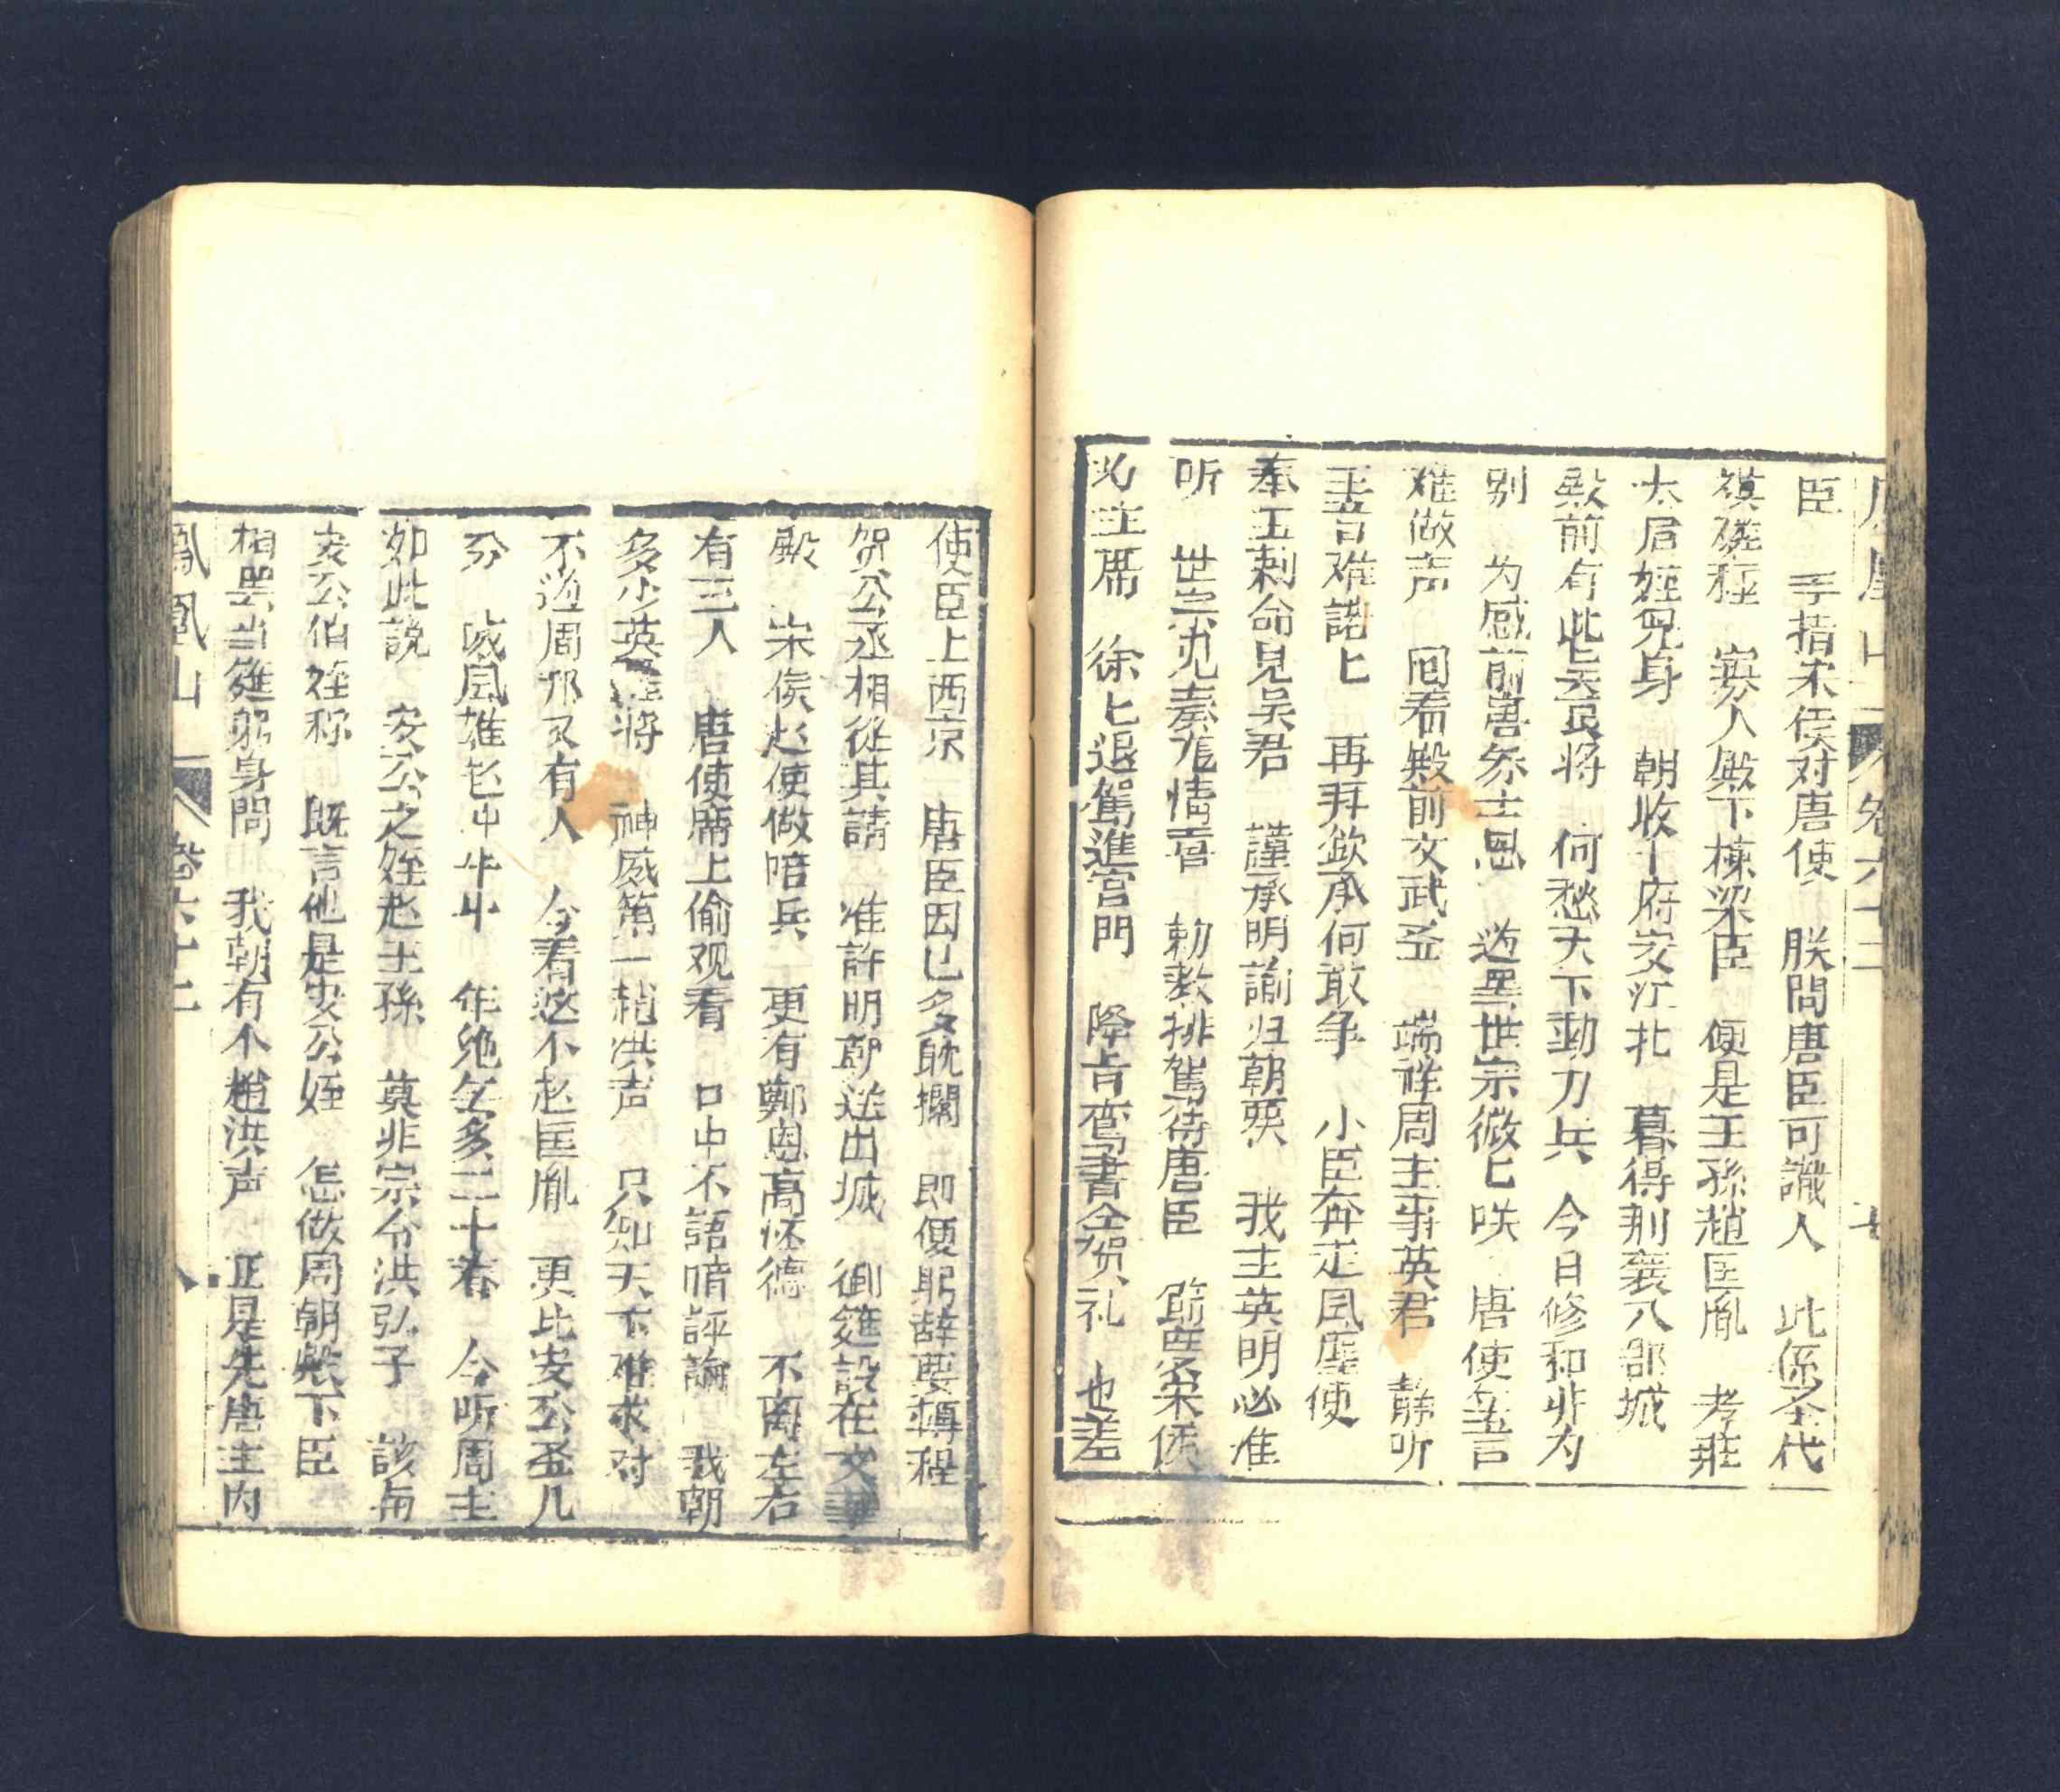 鳳凰山 卷六十二 七
臣 手指宋侯对唐使 朕問唐臣可識人 此係圣代
寡人殿下棟梁臣 便是王孫趙匡胤 孝莊
太君姪兒身 朝收十府交江北 暮得荆襄八郡城
殿前有此 良将 何愁天下動刀兵 今日修和非为
别 为感前唐 士恩 世宗微匕咲 唐使無言
难做声 囘看殿前文武 端 周主事英君 静听
玉言难 匕 再拜欽承何敢争 小臣奔走風塵使
奉王剌命見吴君 謹承明諭归朝 我主英明必准
听 世宗 奏 情 勅教排駕待唐臣 宋侯
为主席 徐匕退駕進宫門 降旨 書仝贺礼 也差
使臣上西京 唐臣因已多耽擱 即便躬辞要轉程
贺公丞相從其請 准許明朝送出城 御筵設在文華
殿 宋侯赵使做陪兵 更有鄭恩高怀德 不离左右
有三人 唐使席上偷观看 口中不語暗評論 我朝
多少英雄将 神威第一趙洪声 只知天下难求对
不 周邦又有人 今看这 赵匡胤 更比安公 几
分 威風 年 多二十春 今听周主
如此說 安公之姪赵王孫 莫非宗令洪弘子 該与
安公伯姪称 既言他是安公姪 怎做周朝殿下臣
相 当筵躬身問 我朝有个趙洪声 正是先唐主内
鳳凰山 卷六十二 八